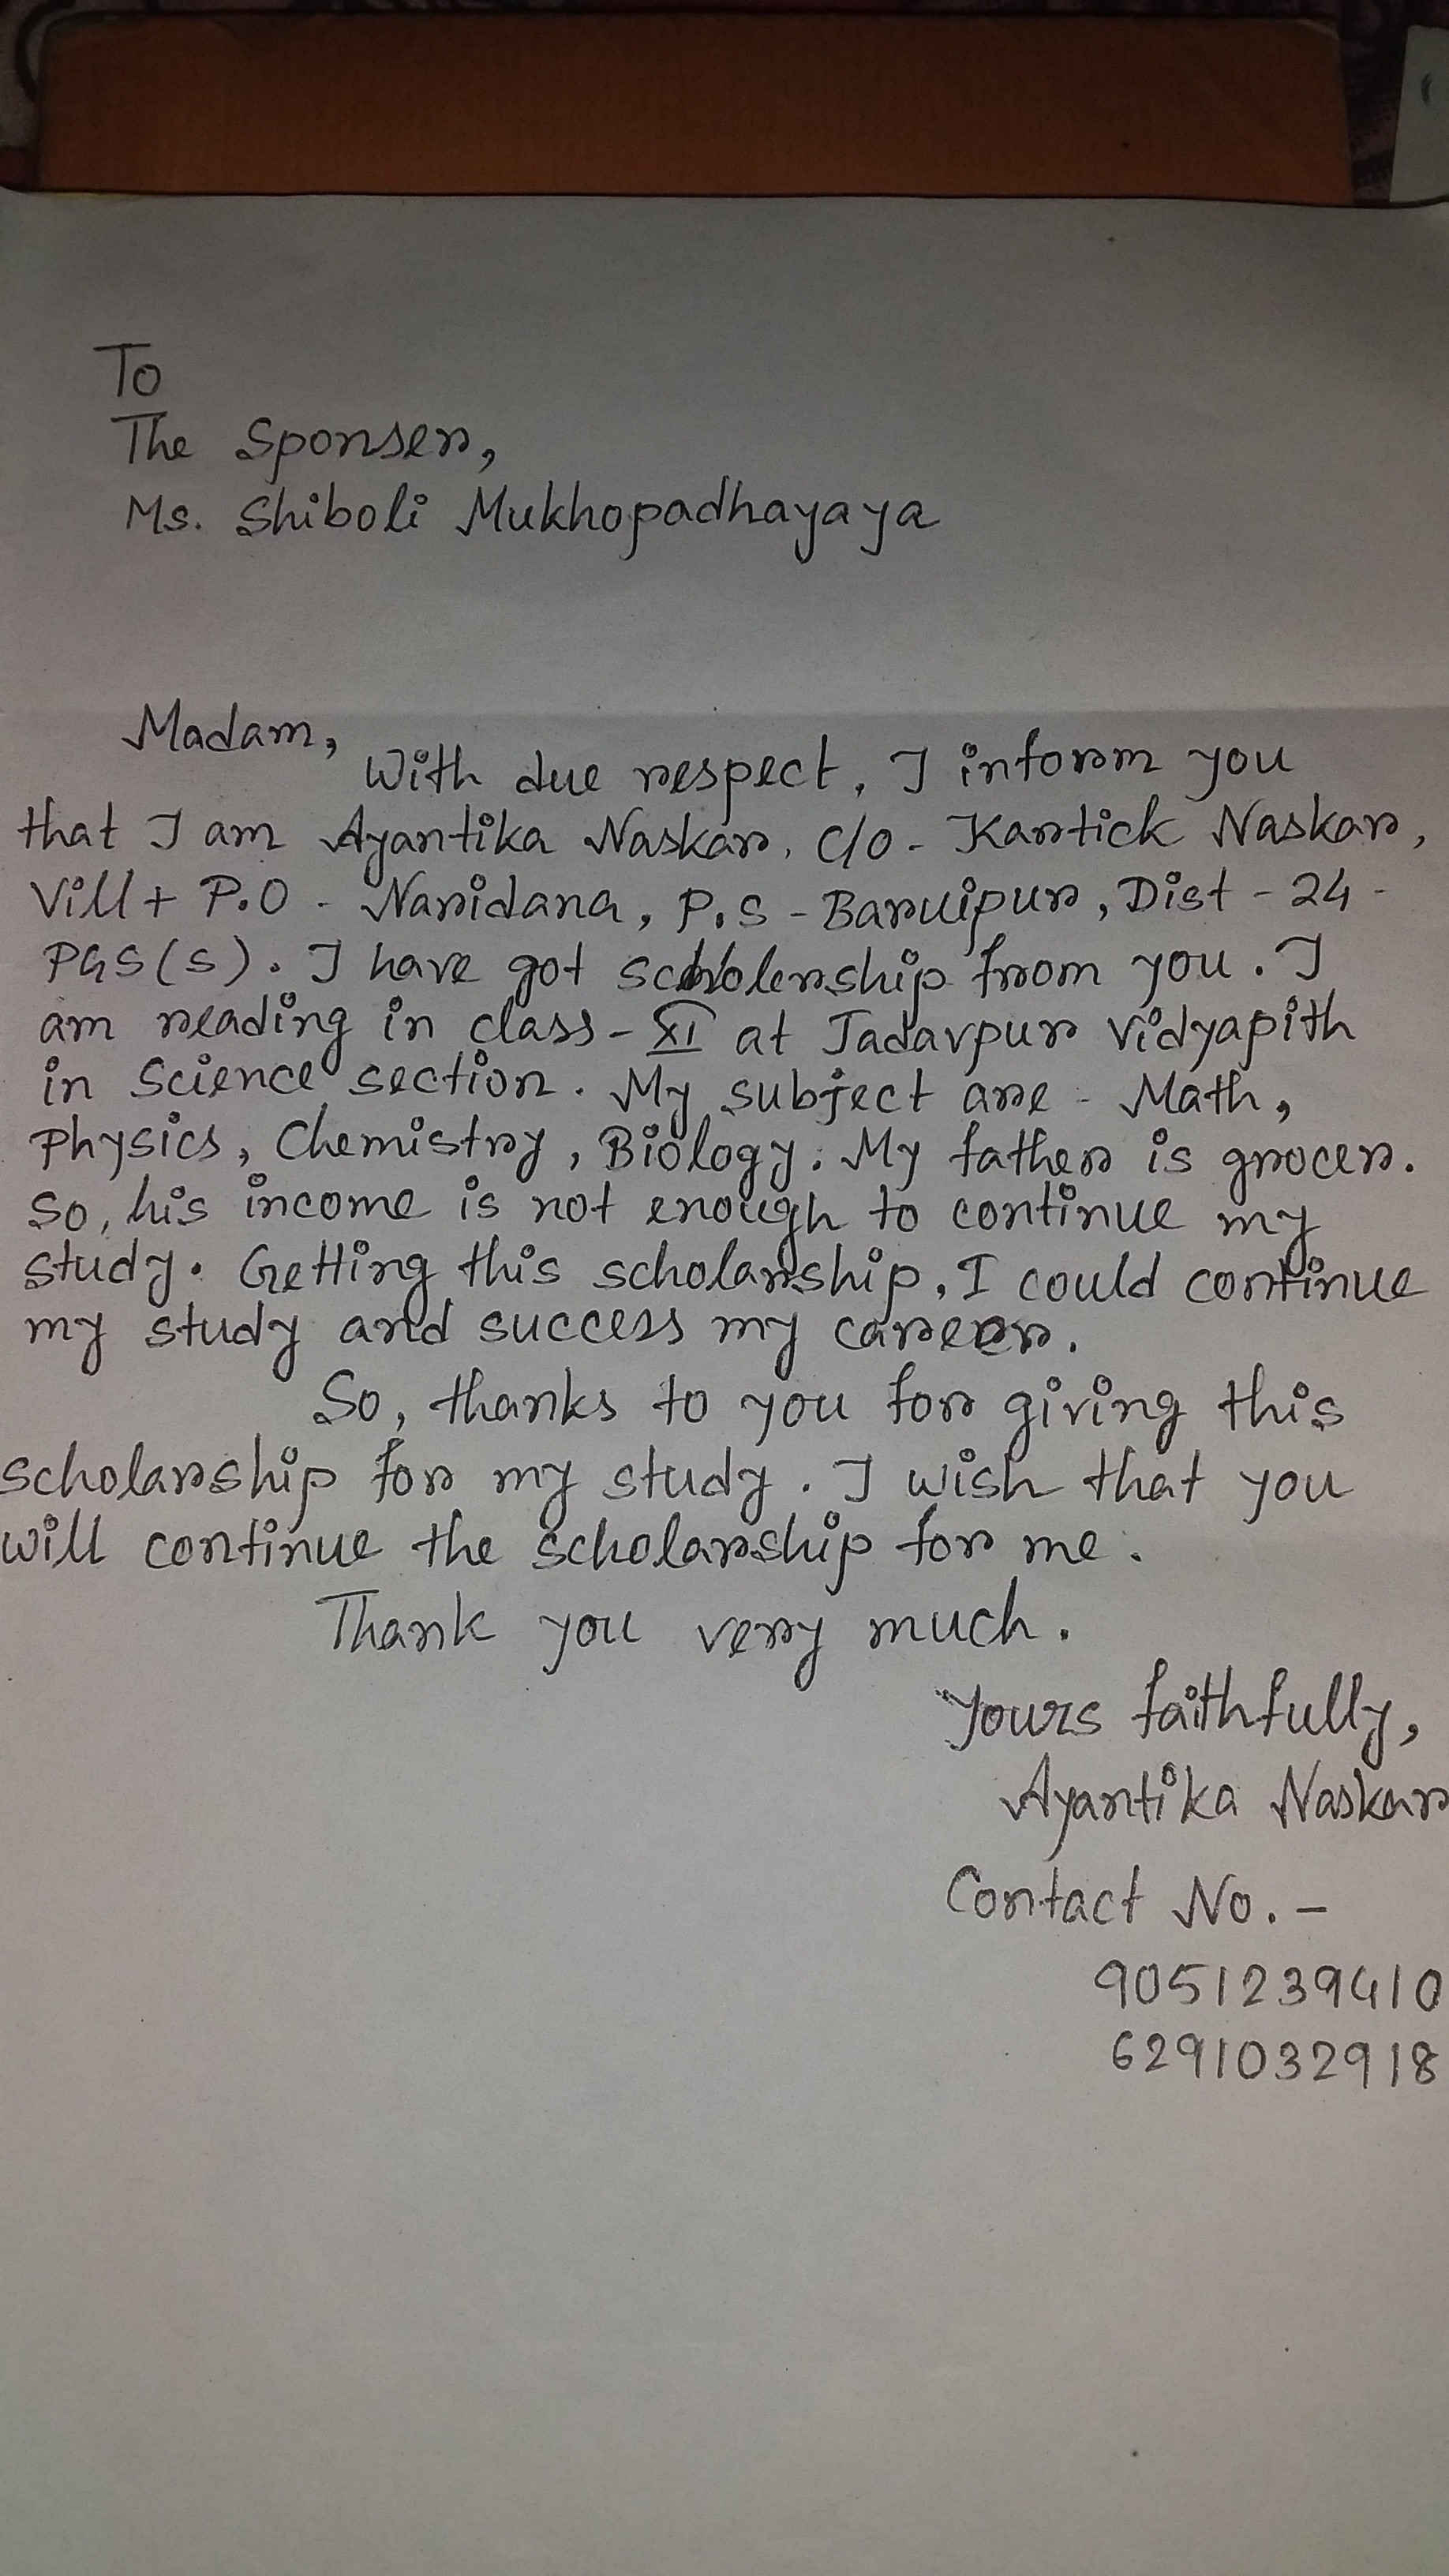 To
The Sponser,
Ms. Shiboli Mukhopadhayaya
Madam,
With due respect, I inform you
that I am Ayantika Naskar, C/O - Kartick Naskar,
Vill + P.O - Naridana, P.S - Baruipur, Dist - 24 -
PGS(S). I have got scholership from you. I
am reading in class - XI at Jadavpur Vidyapith
in Science section. My subject are - Math,
Physics, Chemistry, Biology. My father is grocer.
So, his income is not enough to continue my
study. Getting this scholarship, I could continue
my study and success my career.
So, thanks to you for giving this
scholarship for my study. I wish that you
will continue the scholarship for me.
Thank you very much.
Yours faithfully,
Ayantika Naskar
Contact No. -
9051239410
6291032918